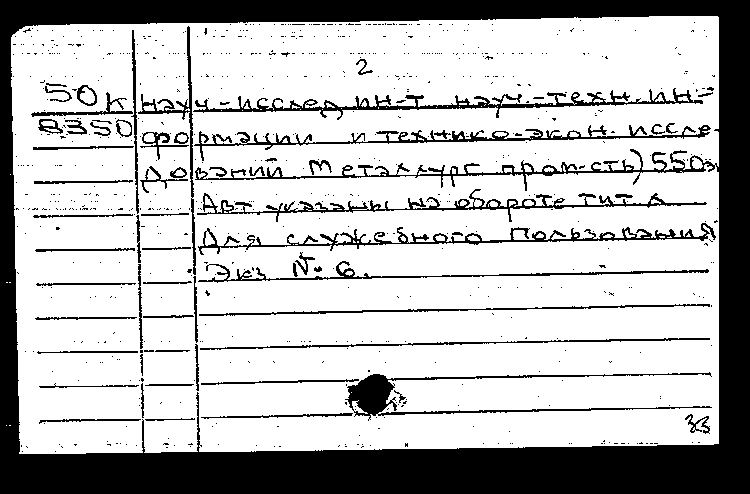 2
50К науч.-исслед ин-т науч.-техн. ин-
8350 формации и технико-экон. иссле-
дований металлург пром-сть) 550э
Авт указаны на обороте тит л
Для служебного пользования
Экз № 6.
33